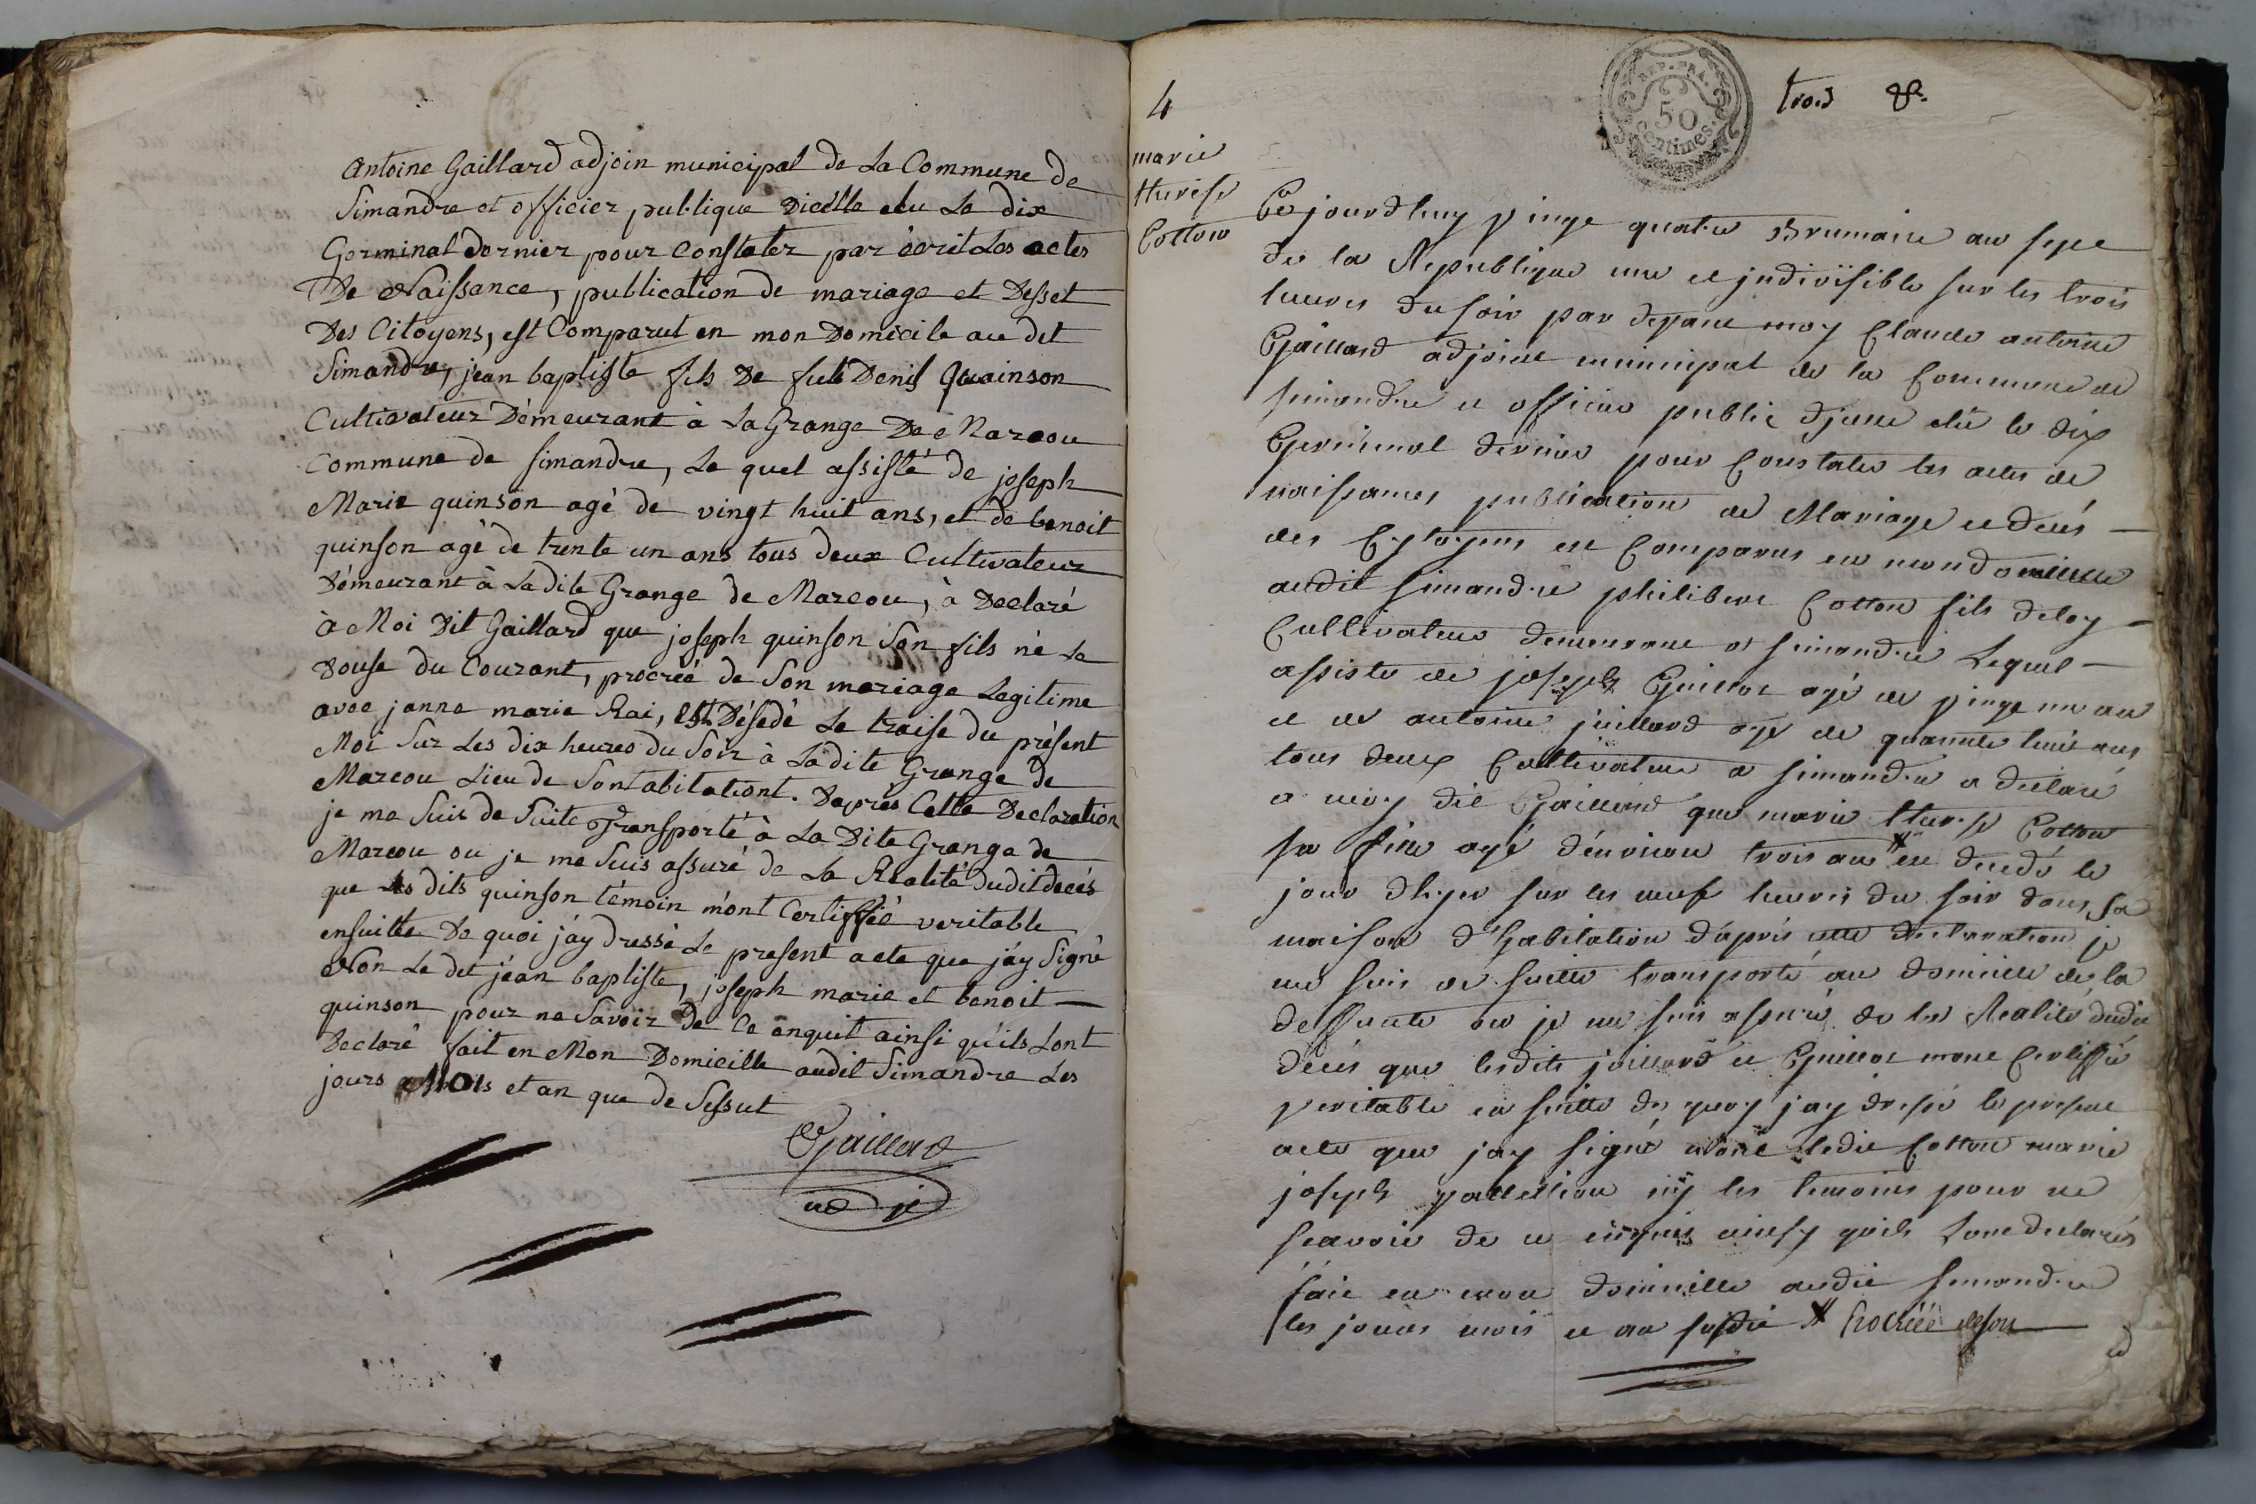 Antoine Gaillard adjoin municipal de La Commune de
Simandre et officier publique Dicèlle elu Le dix
Germinal dernier pour Constater par ècrit Les actes
De Naissance, publication de mariage et Desset
Des Citoyens, est Comparut en mon Domicile au dit
Simandre, jean baptiste fils De fut Denis Quainson
Cultivateur Démeurant à La Grange De Marcou
Commune de Simandre, Le quel assisté de joseph
Marie quinson agé de vingt huit ans, et de benoit
quinson agé de trente un ans tous deux Cultivateur
Démeurant à La dite Grange de Marcou, à Declaré
à Moi Dit Gaillard que joseph quinson Son fils né Le
douse du Courant, procréé de Son mariage Legitime
avec janne marie Rai, est Désedé Le traise du présent
Moi Sur Les dix heures du Soir à Ladite Grange de
Marcou Lieu de Sontabitationt. Daprès Cette Declaration
je me Suis de Suite Transporté à La Dite Grange de
Marcou ou je me Suis assuré de La Realité dudit decès
que Les dits quinson témoin m'ont Certiffié veritable
ensuitte De quoi j'ay dressé Le present acte que j'ay Signé
Non Le dit jéan baptiste, joseph marie et benoit
quinson pour ne Savoir De Ce enquit ainsi qu'ils Lont
Declaré fait en Mon Domicille audit Simandre Les
jours Mois et an que de Sessut
Gaillard
adj
4
trois
REP. FRA.
50
Centimes.
marie
therese
Cotton
Cejourdhuy vingt quatre Brumaire an sept
de la Republique une et jndivisible sur les trois
heures du soir par devant moy Claude antoine
Gaillard adjoint municipal de la Commune de
simandre et officier public djcelle elû le dix
Germinal dernier pour Constater les actes de
naissances publication de Mariage et decés
des Cytoyens est Comparus en mon domicille
audit simandre philibert Cotton fils deloy
Cultivateur demeurant a simandre Lequel
assisté de joseph Guillot agé de vingt un an
et de antoine juillard agé de quarante huit ans
tous deux Cultivateur a simandre a declaré
a moy dit Gaillard que marie therese Cotton
sa fille agé d'environ trois ans est decedé le
jour dhyer sur les neuf heures du soir dans sa
maison d'habitation d'aprés cette declaration je
me suis de suitte transporté au domicille de la
deffunte ou je me suis assuré de la Realité dudit
décés que lesdits juillard et Guillot mont Certiffié
veritable en suitte de quoy j'ay dressé le present
acte que jay signé non ledit Cotton marie
joseph ny les temoins pour ne
scavoir de ce enquis ainsy qu'ils Lont declarés
fait en mon domicille audit simandre
les jours mois et an susdit procréé de son